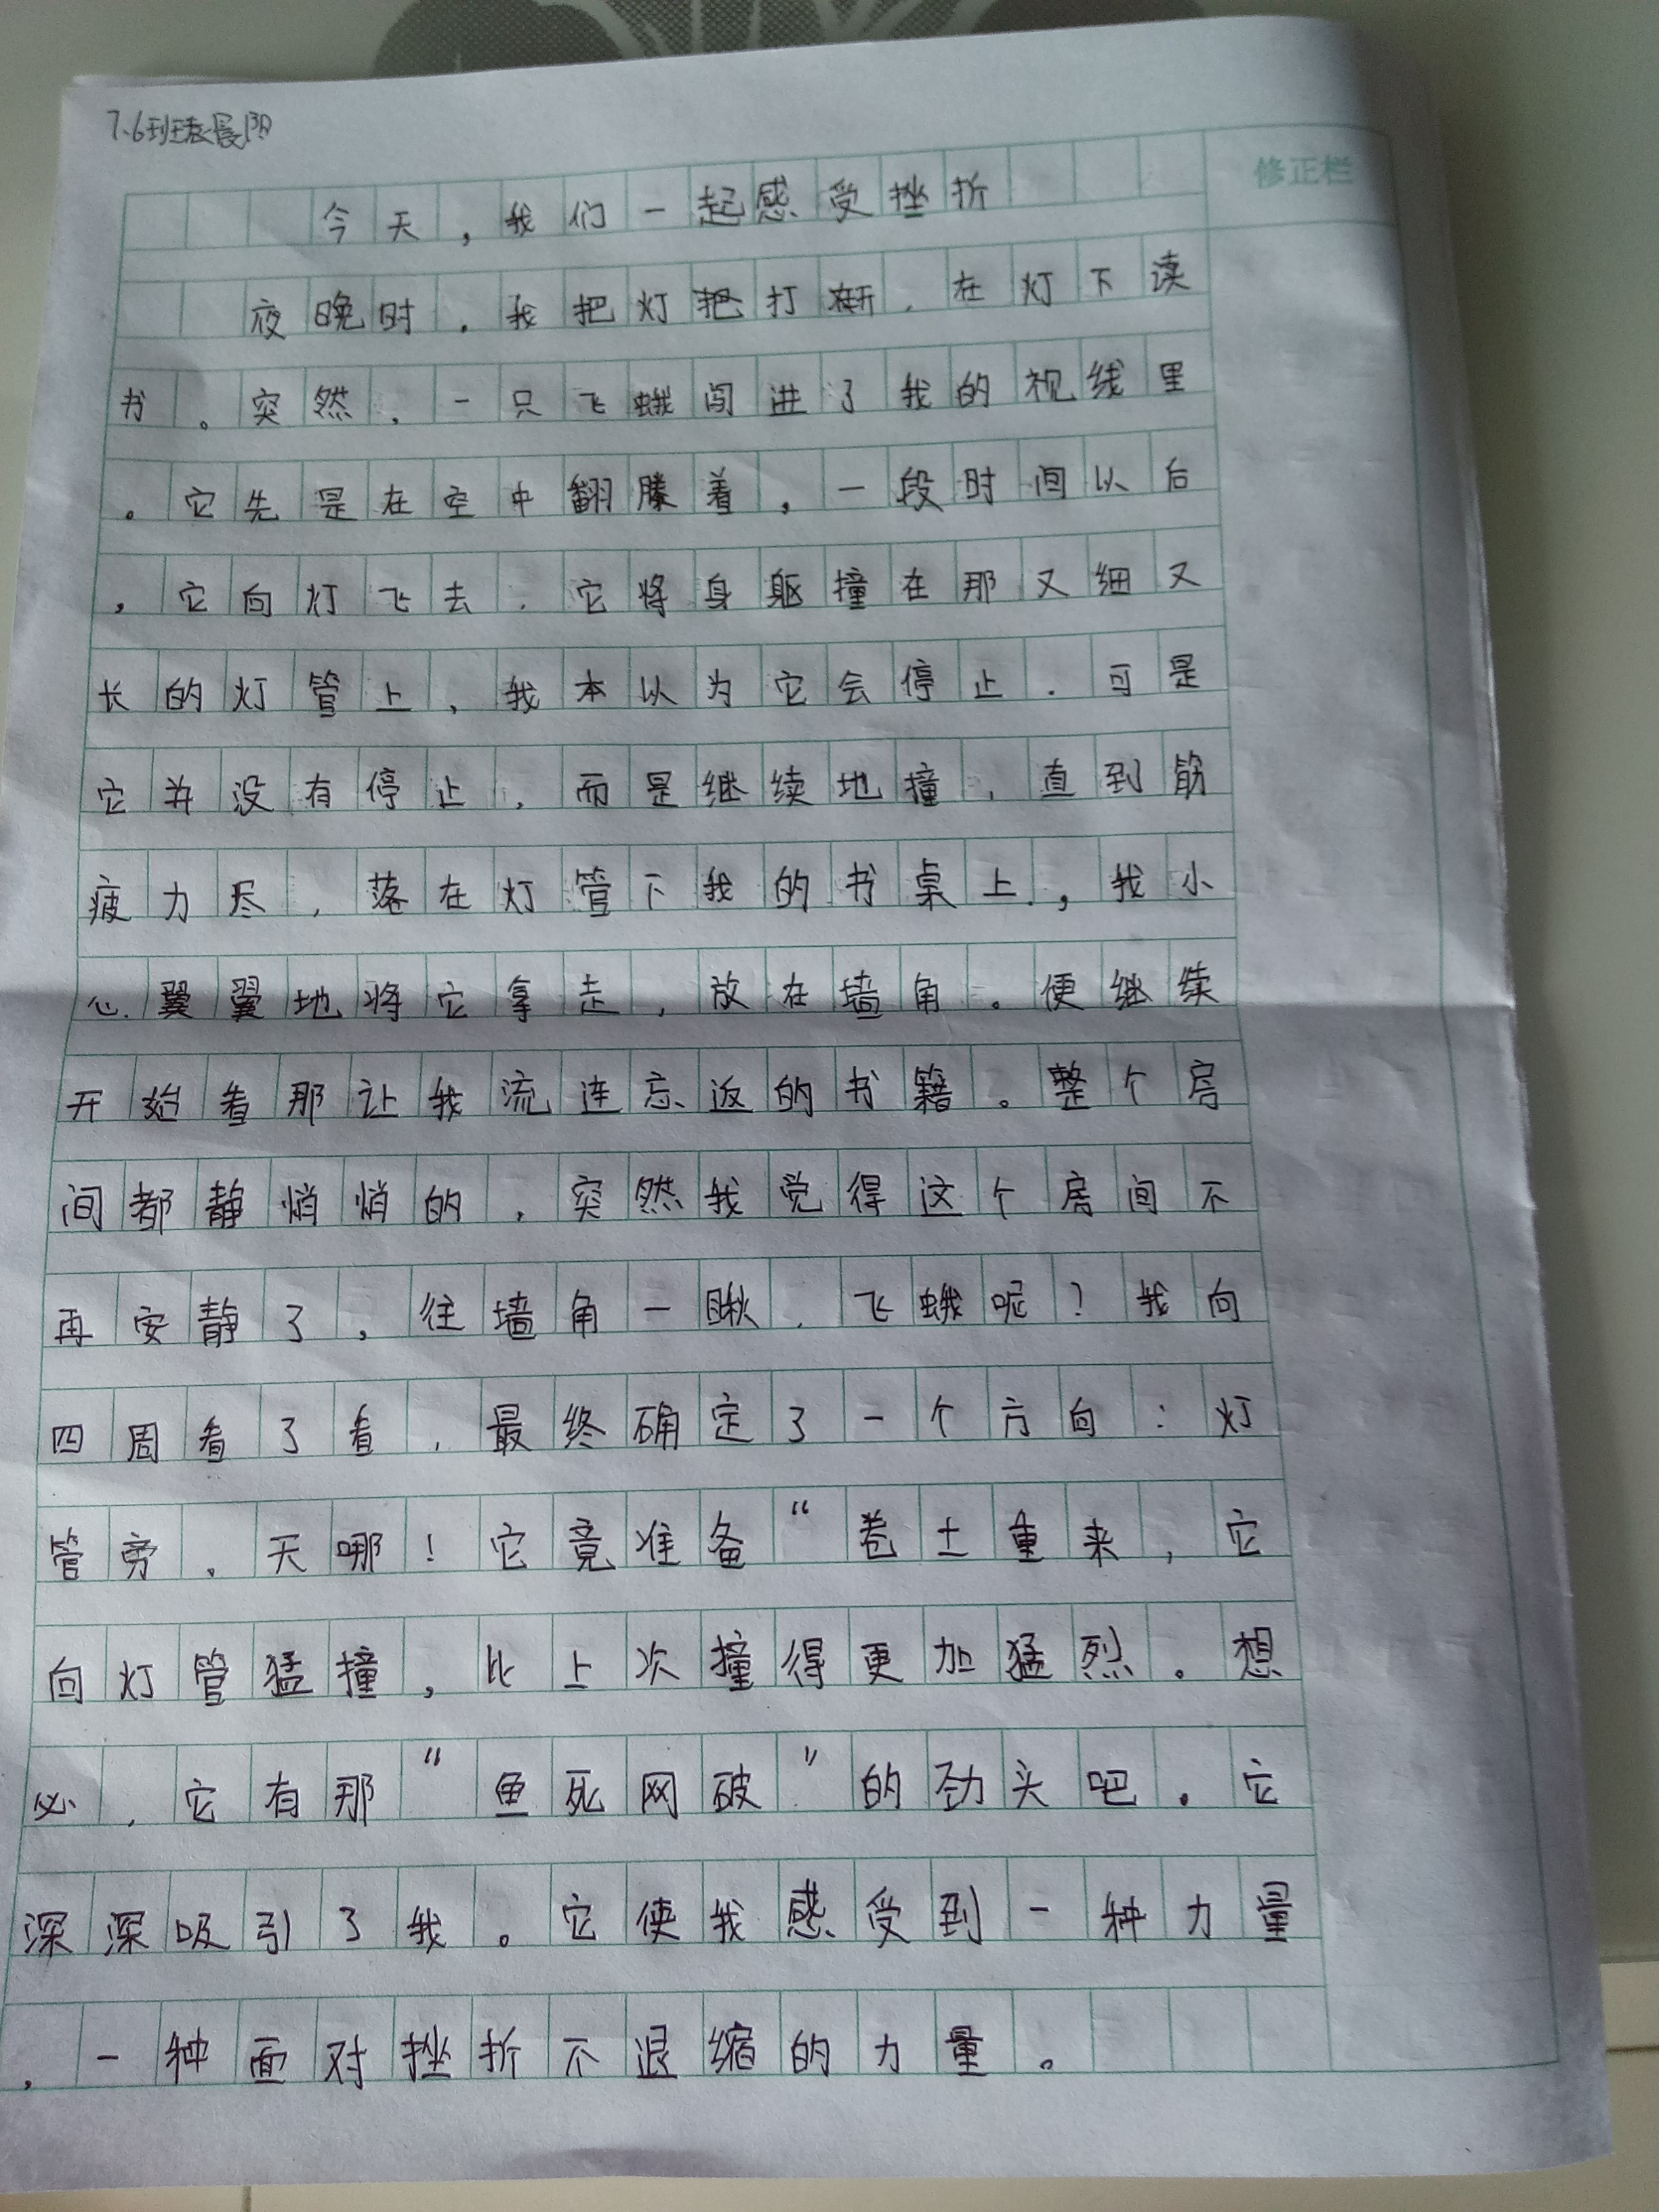 7.6班 晨阳
修正栏
今天，我们一起感受挫折
夜晚时，我把灯把打开，在灯下读
书。突然，一只飞蛾闯进了我的视线里
。它先是在空中翻腾着，一段时间以后
，它向灯飞去，它将身躯撞在那又细又
长的灯管上，我本以为它会停止，可是
它并没有停止，而是继续地撞，直到筋
疲力尽，落在灯管下我的书桌上，我小
心翼翼地将它拿走，放在墙角。便继续
开始看那让我流连忘返的书籍。整个房
间都静悄悄的，突然我觉得这个房间不
再安静了，往墙角一瞅，飞蛾呢？我向
四周看了看，最终确定了一个方向：灯
管旁。天哪！它竟准备“卷土重来，它
向灯管猛撞，比上次撞得更加猛烈。想
必，它有那“鱼死网破”的劲头吧。它
深深吸引了我。它使我感受到一种力量
，一种面对挫折不退缩的力量。